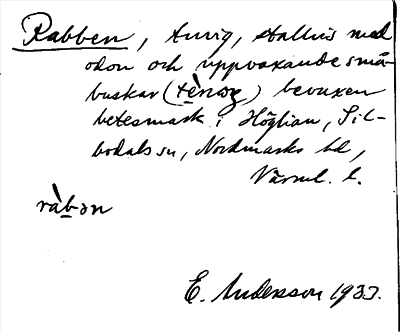 Rabben, kurig, stallvis med
odon och uppvaxande små-
buskar (tènəg) bevuxen
betesmark i Höglian, Sil-
bodals sn, Nordmarks hd,
Värml. l.
ràbən
E. Andersson 1937.